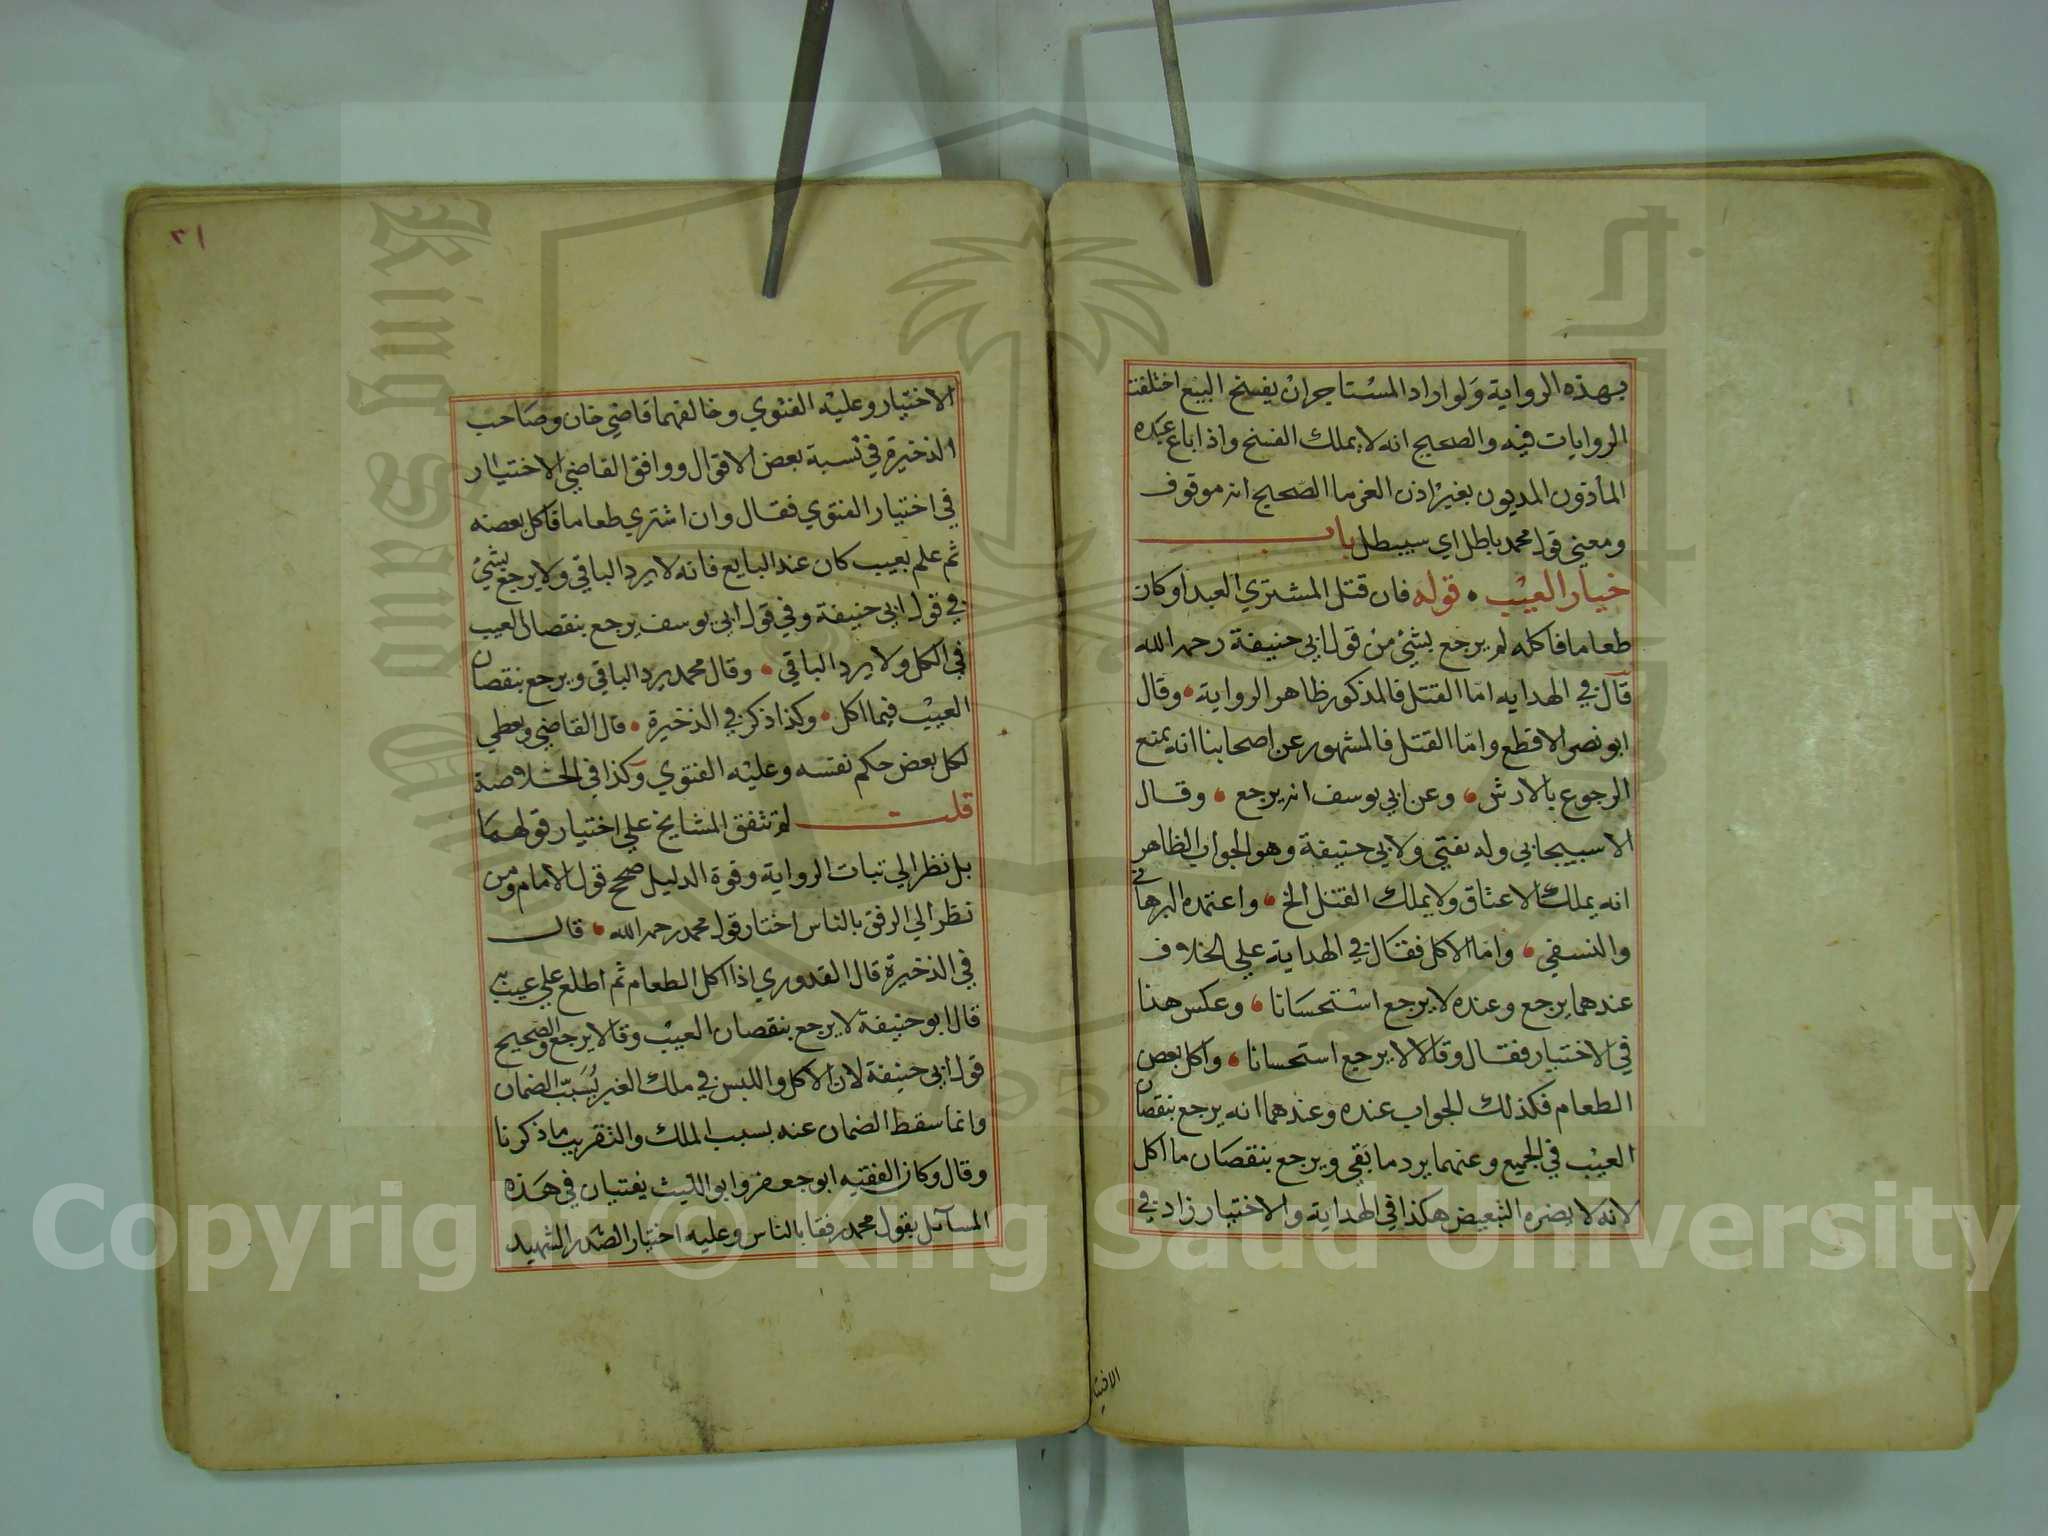 بهذه الرواية ولو اراد المستاجر ان يفسخ البيع اختلفت
الروايات فيه والصحيح انه لا يملك الفسخ واذا باع عبده
المأذون المديون بغير اذن الغرما الصحيح انه موقوف
ومعني قول محمد باطل اي سيبطل باب
خيار العيب • قوله فان قتل المشتري العبد او كان
طعاما فاكله لم يرجع بشئ من قول ابي حنيفة رحمه الله
قال في الهدايه اما القتل فالمذكور ظاهر الرواية وقال
ابو نصر الاقطع واما القتل فالمشهور عن اصحابنا انه يمنع
الرجوع بالارش وعن ابي يوسف انه يرجع وقال
الاسبيجابي وله نفتي ولابي حنيفة وهو الجواب الظاهر
انه يملك الاعتاق ولا يملك القتل الخ واعتمده البرهاني
والنسفي واما الاكل فقال في الهداية علي الخلاف
عندهما يرجع وعنده لا يرجع استحسانا وعكس هذا
في الاختيار فقال وقالا لا يرجع استحسانا واكل بعض
الطعام فكذلك الجواب عنده وعندهما انه يرجع بنقصان
العيب في الجميع وعنهما يرد ما بقي ويرجع بنقصان ما اكل
لانه لا يضره التبعيض هكذا في الهداية والاختيار زاد في
الاختيا
٣١
الاختيار وعليه الفتوي وخالفهما قاضي خان وصاحب
الذخيرة في نسبة بعض الاقوال ووافق القاضي الاختيار
في اختيار الفتوي فقال وان اشتري طعاما فاكل بعضه
ثم علم بعيب كان عند البايع فانه لا يرد الباقي ولا يرجع بشئ
في قول ابي حنيفة وفي قول ابي يوسف يرجع بنقصان العيب
في الكل ولا يرد الباقي وقال محمد يرد الباقي ويرجع بنقصان
العيب فيما اكل وكذا ذكر في الذخيرة قال القاضي ويعطي
لكل بعض حكم نفسه وعليه الفتوي وكذا في الخلاصة
قلت لم تتفق المشايخ علي اختيار قولهما
بل نظر الي ثبات الرواية وقوة الدليل صحح قول الامام ومن
نظر الي الرفق بالناس اختار قول محمد رحمه الله قال
في الذخيرة قال القدوري اذا اكل الطعام ثم اطلع علي عيب به
قال ابو حنيفة لا يرجع بنقصان العيب وقالا يرجع والصحيح
قول ابي حنيفة لان الاكل واللبس في ملك الغير يسبب الضمان
وانما سقط الضمان عنه بسبب الملك والتقريب ما ذكرنا
وقال وكان الفقيه ابو جعفر وابو الليث يفتيان في هذه
المسائل بقول محمد رفقا بالناس وعليه اختيار الصدر الشهيد
King Saud University
1957
Copyright © King Saud University